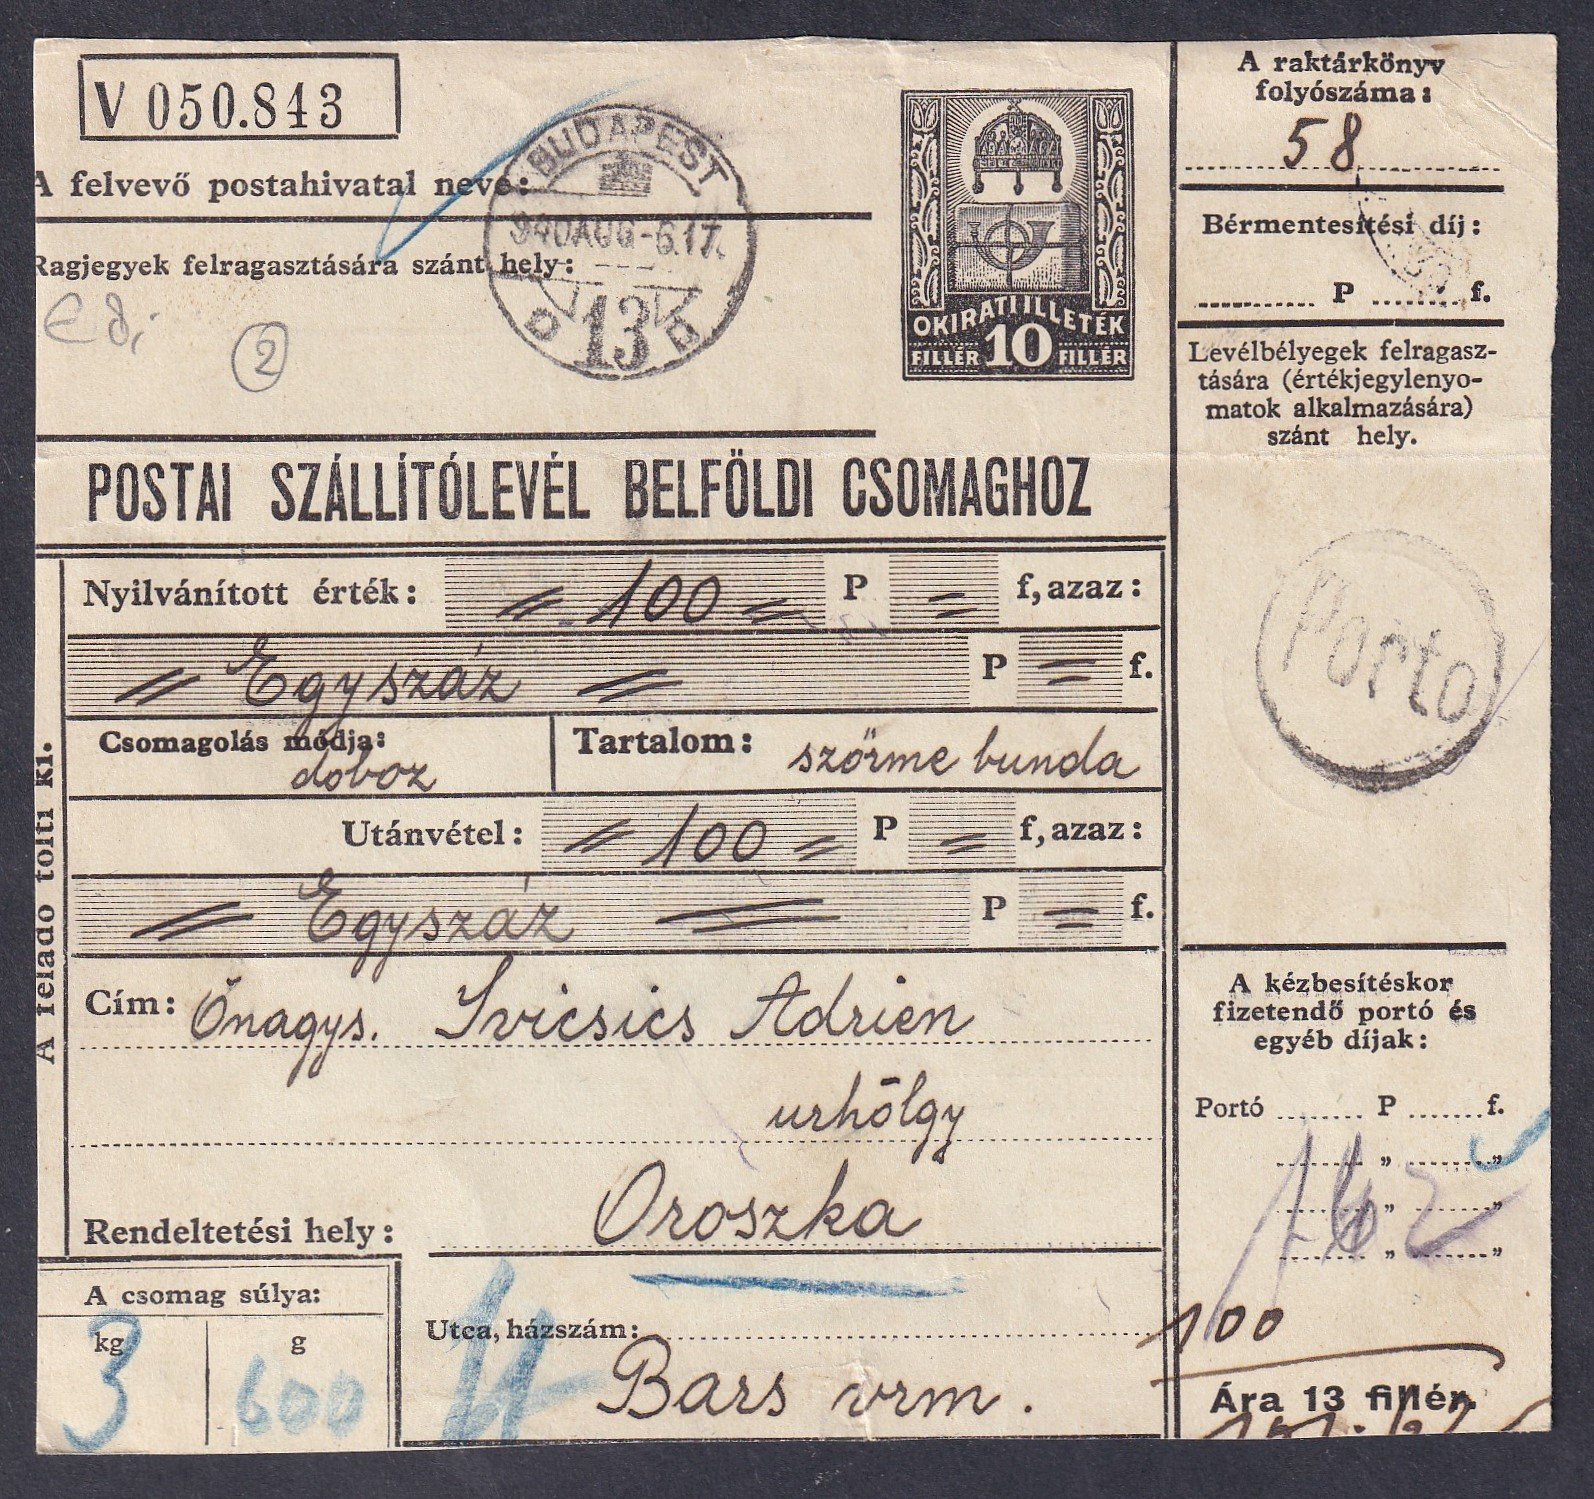 V 050.843
BUDAPEST
940AUG-6.17.
D 13 D
A felvevő postahivatal neve:
Ragjegyek felragasztására szánt hely:
2
OKIRATI ILLETÉK
FILLÉR 10 FILLÉR
A raktárkönyv
folyószáma:
58
Bérmentesítési díj:
P f.
Levélbélyegek felragasz-
tására (értékjegylenyo-
matok alkalmazására)
szánt hely.
POSTAI SZÁLLÍTÓLEVÉL BELFÖLDI CSOMAGHOZ
A feladó tölti ki.
Nyilvánított érték: = 100 = P = f, azaz:
= Egyszáz = P = f.
Csomagolás módja: doboz
Tartalom: szőrme bunda
Utánvétel: = 100 = P = f, azaz:
= Egyszáz = P = f.
Cím: Őnagys. Ivicsics Adrien
urhölgy
Rendeltetési hely: Oroszka
Utca, házszám:
Bars vrm.
A csomag súlya:
kg g
3 600
Porto
A kézbesítéskor
fizetendő portó és
egyéb díjak:
Portó P f.
" "
" "
" "
100
Ára 13 fillér.